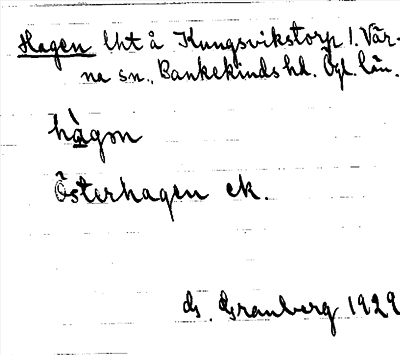 Hagen lht å Kungsvikstorp 1. Vår-
na sn., Bankekinds hd. Ögl. län.
hàgon
Österhagen ek.
G. Granberg 1929